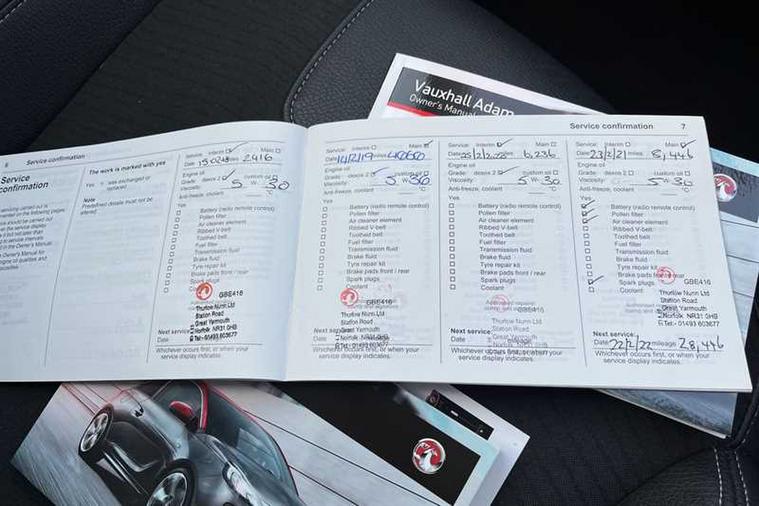 Vauxhall Adam
Owner's Manual
6 Service confirmation
Service
confirmation
The work is marked with yes
Yes = was exchanged or
replaced
Note
Predefined details must not be
altered
Service: Interim Main
Date miles 2416
Engine oil
Grade: dexos 2 custom oil
Viscosity: 5 W 30
Anti-freeze, coolant °C
Yes
Battery (radio remote control)
Pollen filter
Air cleaner element
Ribbed V-belt
Toothed belt
Fuel filter
Transmission fluid
Brake fluid
Tyre repair kit
Brake pads front / rear
Spark plugs
Coolant
GBE416
Thurlow Nunn Ltd
Station Road
Great Yarmouth
Norfolk NR31 0HB
Tel:- 01493 603677
Next service:
Date
Whichever occurs first, or when your
service display indicates.
Service confirmation 7
Service: Interim Main
Date 14/2/19 miles
Engine oil
Grade: dexos 2 custom oil
Viscosity: 5 W 30
Anti-freeze, coolant °C
Yes
Battery (radio remote control)
Pollen filter
Air cleaner element
Ribbed V-belt
Toothed belt
Fuel filter
Transmission fluid
Brake fluid
Tyre repair kit
Brake pads front / rear
Spark plugs
Coolant
GBE416
Thurlow Nunn Ltd
Station Road
Great Yarmouth
Norfolk NR31 0HB
Tel:- 01493 603677
Next service:
Date mileage
Whichever occurs first, or when your
service display indicates.
Service: Interim Main
Date 25/2/2020 miles 6,236
Engine oil
Grade: dexos 2 custom oil
Viscosity: 5 W 30
Anti-freeze, coolant °C
Yes
Battery (radio remote control)
Pollen filter
Air cleaner element
Ribbed V-belt
Toothed belt
Fuel filter
Transmission fluid
Brake fluid
Tyre repair kit
Brake pads front / rear
Spark plugs
Coolant
GBE416
Thurlow Nunn Ltd
Station Road
Great Yarmouth
Norfolk NR31 0HB
Next service:
Date mileage
Whichever occurs first, or when your
service display indicates.
Service: Interim Main
Date 23/2/21 miles 8,446
Engine oil
Grade: dexos 2 custom oil
Viscosity: 5 W 30
Anti-freeze, coolant °C
Yes
Battery (radio remote control)
Pollen filter
Air cleaner element
Ribbed V-belt
Toothed belt
Fuel filter
Transmission fluid
Brake fluid
Tyre repair kit
Brake pads front / rear
Spark plugs
Coolant
GBE416
Thurlow Nunn Ltd
Station Road
Great Yarmouth
Norfolk NR31 0HB
Tel:- 01493 603677
Next service:
Date 22/2/22 mileage 28,446
Whichever occurs first, or when your
service display indicates.